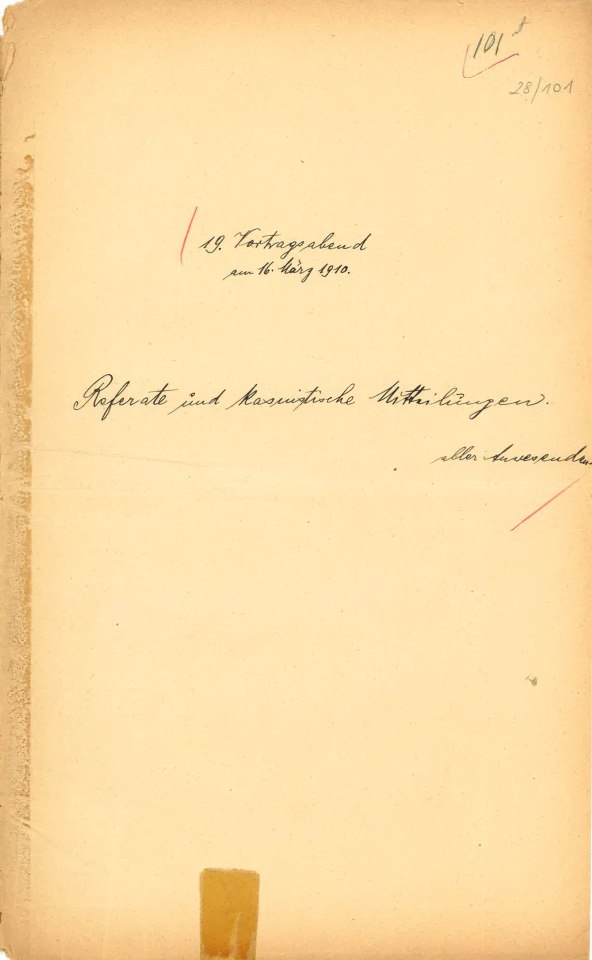 101
28/101
19. Vortragsabend
am 16. März 1910.
Referate und kasuistische Mitteilungen.
aller Anwesenden